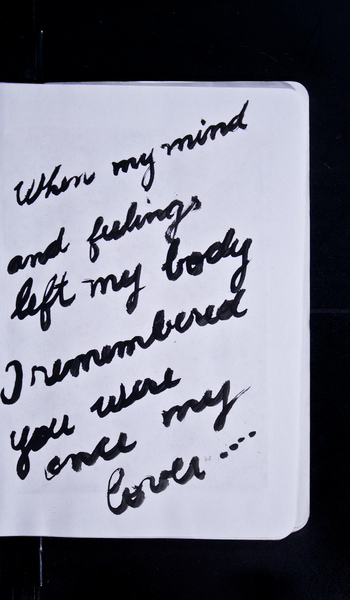 When my mind
and feelings
left my body
I remembered
you were
once my
lover....